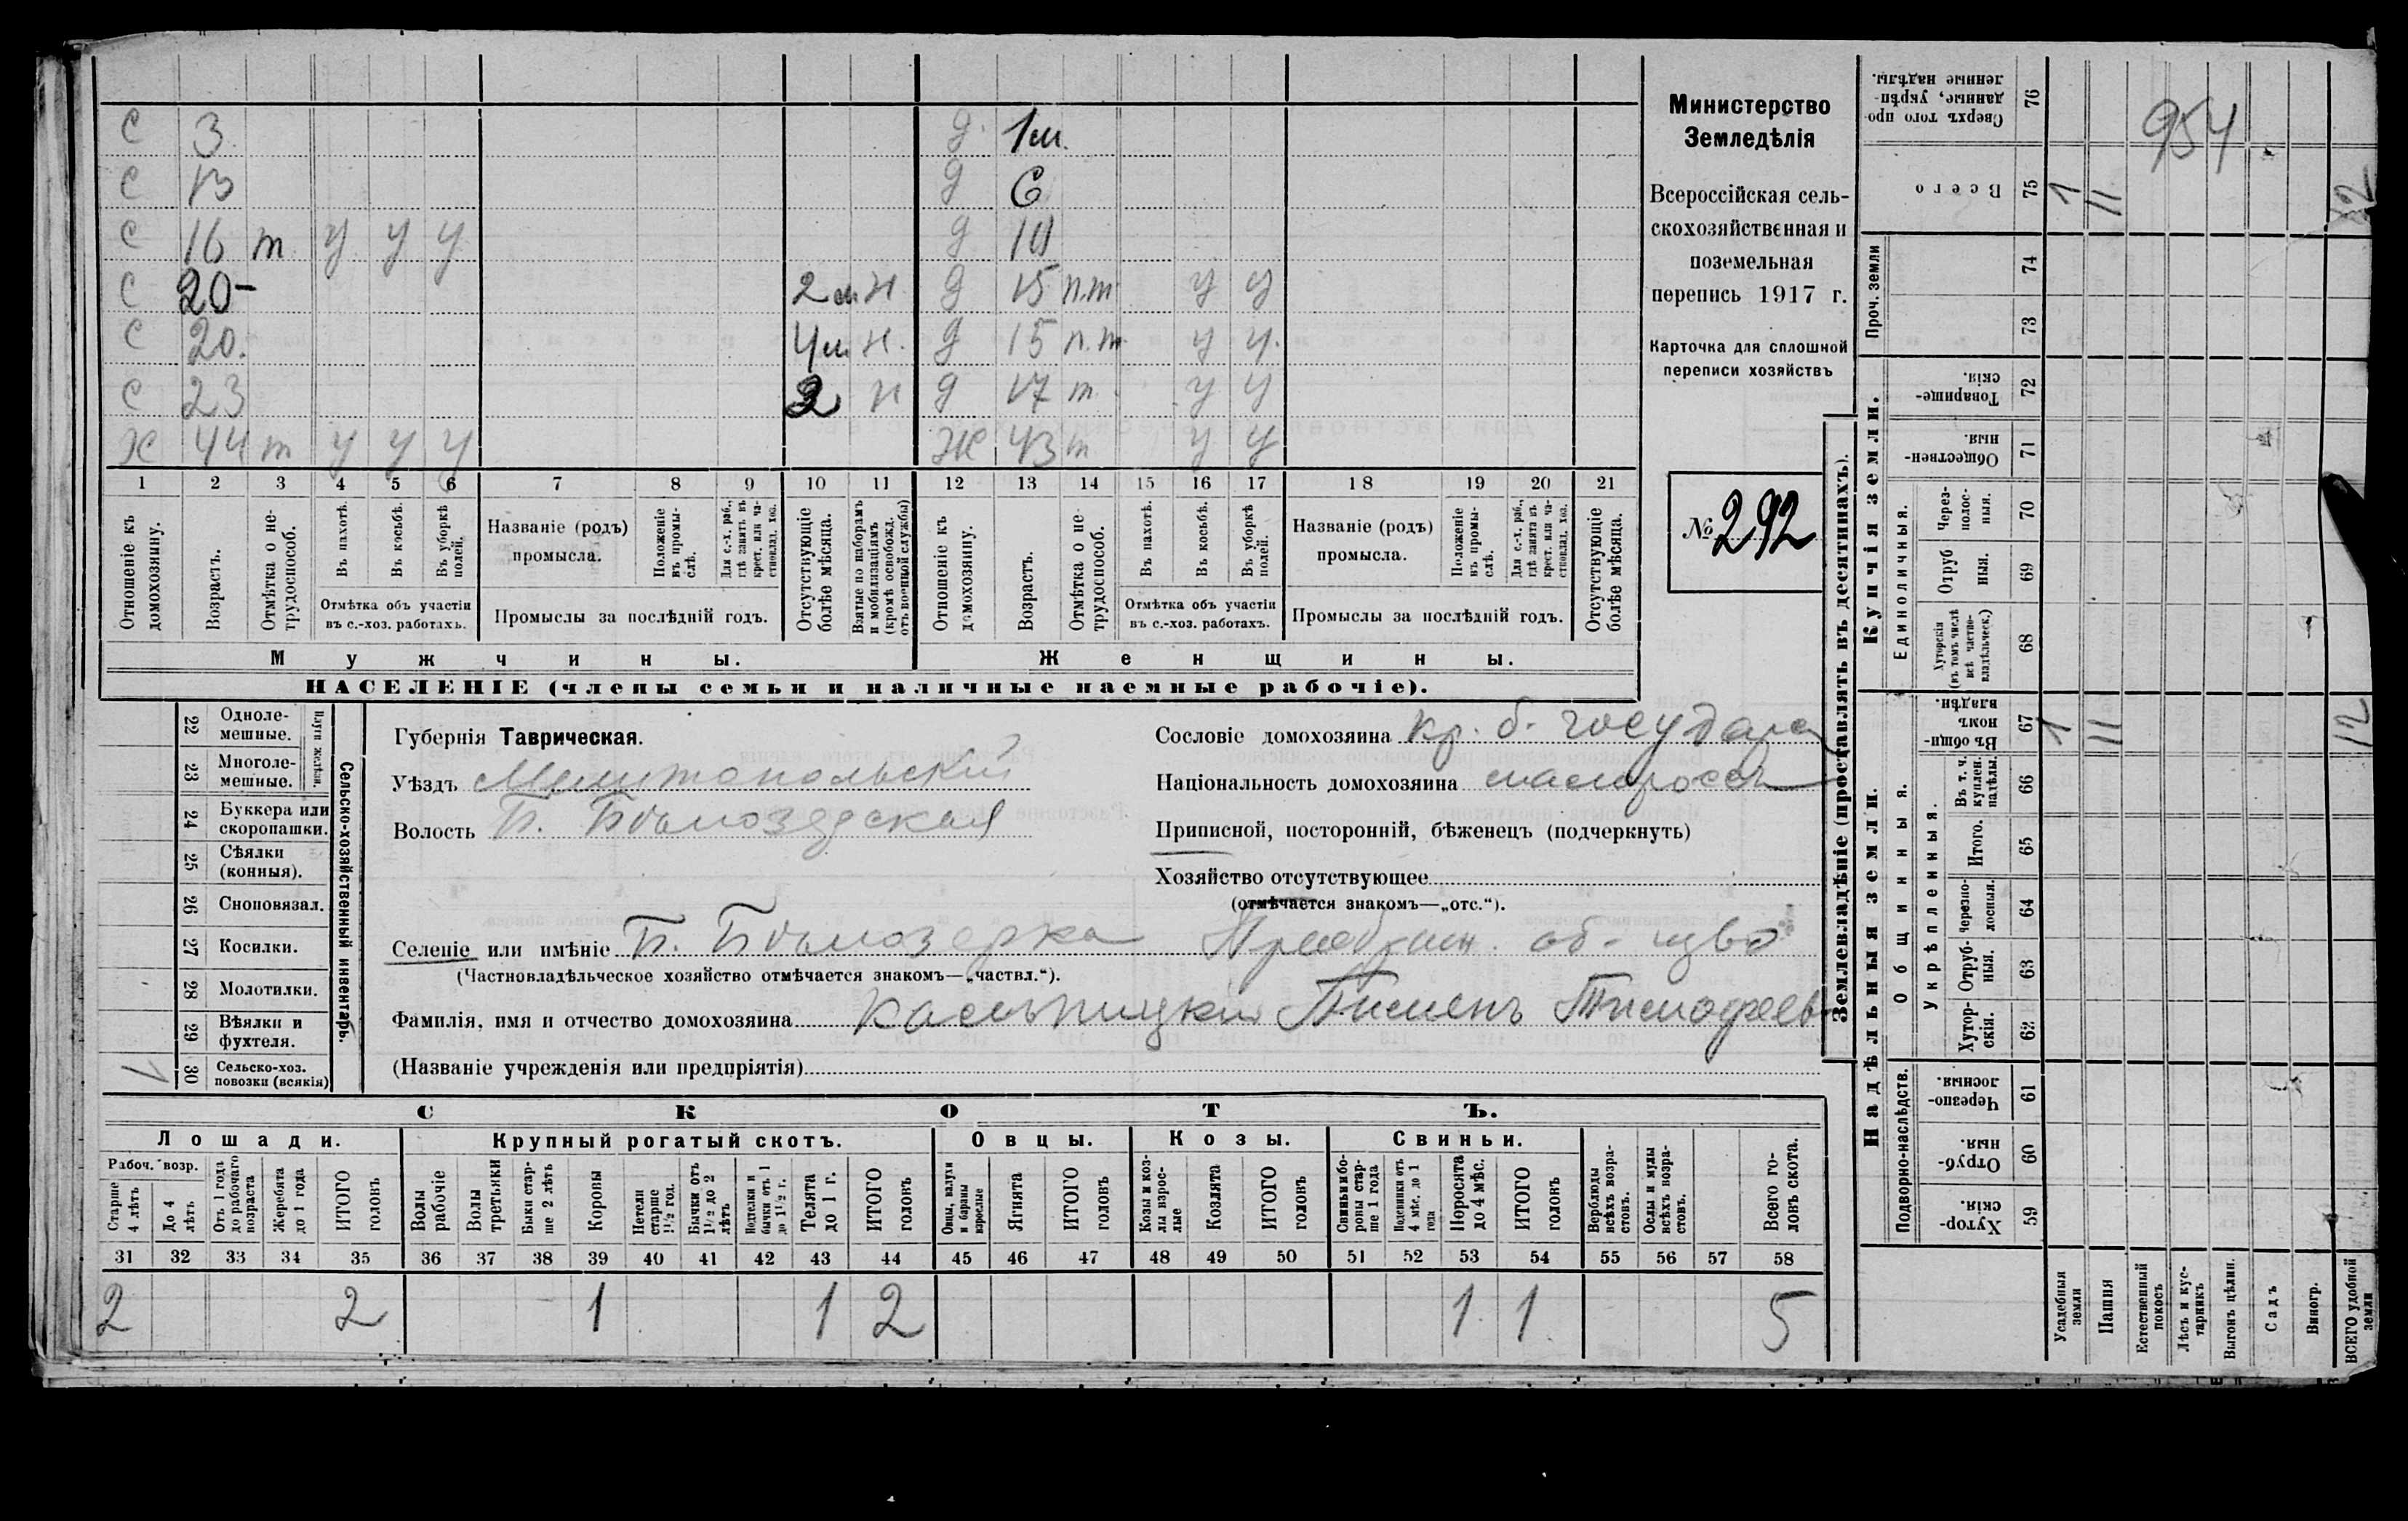 С 3 д. 1 м.
С 13 д 6
С 16 т у у у д 10
С 20- 2 м н д 15 п.т у у
С 20. 4 м н. д 15 п.т у у.
С 23 2 н д 17 т у у
Х 44 т у у у Ж 43 т у у
1 2 3 4 5 6 7 8 9 10 11 12 13 14 15 16 17 18 19 20 21
Отношеніе къ домохозяину.
Возрастъ.
Отмѣтка о нетрудоспособ.
Въ пахотѣ.
Въ косьбѣ.
Въ уборкѣ полей.
Отмѣтка объ участіи въ с.-хоз. работахъ.
Названіе (родъ) промысла.
Положеніе въ промыслѣ.
Для с.-х. раб., гдѣ занятъ въ крест. или частновлад. хоз.
Промыслы за послѣдній годъ.
Отсутствующіе болѣе мѣсяца.
Взятые по наборамъ и мобилизаціямъ (кромѣ освобожд. отъ военной службы)
Отношеніе къ домохозяину.
Возрастъ.
Отмѣтка о нетрудоспособ.
Въ пахотѣ.
Въ косьбѣ.
Въ уборкѣ полей.
Отмѣтка объ участіи въ с.-хоз. работахъ.
Названіе (родъ) промысла.
Положеніе въ промыслѣ.
Для с.-х. раб., гдѣ занята въ крест. или частновлад. хоз.
Промыслы за послѣдній годъ.
Отсутствующіе болѣе мѣсяца.
Мужчины. Женщины.
НАСЕЛЕНІЕ (члены семьи и наличные наемные рабочіе).
Министерство
Земледѣлія
Всероссійская сель-
скохозяйственная и
поземельная
перепись 1917 г.
Карточка для сплошной
переписи хозяйствъ
№ 292
Сельско-хозяйственный инвентарь.
Плуги желѣзн.
22 Одноле-мешные.
23 Многоле-мешные.
24 Буккера или скоропашки.
25 Сѣялки (конныя).
26 Сноповязал.
27 Косилки.
28 Молотилки.
29 Вѣялки и фухтеля.
30 Сельско-хоз. повозки (всякія)
Губернія Таврическая.
Уѣздъ Мелитопольскій
Волость Б. Бѣлозерская
Сословіе домохозяина кр. б. государ
Національность домохозяина малоросс
Приписной, посторонній, бѣженецъ (подчеркнуть)
Хозяйство отсутствующее
(отмѣчается знакомъ—„отс.“).
Селеніе или имѣніе Б. Бѣлозерка об-щво
(Частновладѣльческое хозяйство отмѣчается знакомъ—„частвл.“).
Фамилія, имя и отчество домохозяина Пименъ Тимофеев
(Названіе учрежденія или предпріятія)
СКОТЪ.
Лошади. Крупный рогатый скотъ. Овцы. Козы. Свиньи.
Рабоч. возр.
Старше 4 лѣтъ
До 4 лѣтъ
Отъ 1 года до рабочаго возраста
Жеребята до 1 года
ИТОГО головъ
Волы рабочіе
Волы третьяки
Быки старше 2 лѣтъ
Коровы
Нетели старше 1½ год.
Бычки отъ 1½ до 2 лѣтъ
Подтелки и бычки отъ 1 до 1½ г.
Телята до 1 г.
ИТОГО головъ
Овцы, валухи и бараны взрослые
Ягнята
ИТОГО головъ
Козы и козлы взрослые
Козлята
ИТОГО головъ
Свиньи и боровы старше 1 года
Подсвинки отъ 4 мѣс. до 1 года
Поросята до 4 мѣс.
ИТОГО головъ
Верблюды всѣхъ возрастовъ.
Ослы и мулы всѣхъ возрастовъ.
Всего головъ скота.
31 32 33 34 35 36 37 38 39 40 41 42 43 44 45 46 47 48 49 50 51 52 53 54 55 56 57 58
2 2 1 1 2 1 1 5
Землевладѣніе (проставлять въ десятинахъ).
Купчія земли.
Надѣльныя земли.
76 Сверхъ того проданные, укрѣпленные надѣлы.
954
75 Всего 1 11 12
Проч. земли
74
73
72 Товарищескія.
71 Общественныя.
Единоличныя.
70 Черезполосныя.
69 Отрубныя.
68 Хуторскія (въ томъ числѣ всѣ частновладѣльческ.)
Общинныя.
67 Въ общинномъ владѣн. 1 11 12
Укрѣпленныя.
66 Въ т. ч. куплен. надѣлы.
65 Итого.
64 черезполосныя.
63 Отрубныя.
62 Хуторскія.
Подворно-наслѣдств.
61 Черезполосныя.
60 Отрубныя.
59 Хуторскія.
Усадебныя земли
Пашня
Естественный покосъ
Лѣсъ и кустарникъ
Выгонъ цѣлин.
Садъ
Виногр.
ВСЕГО удобной земли